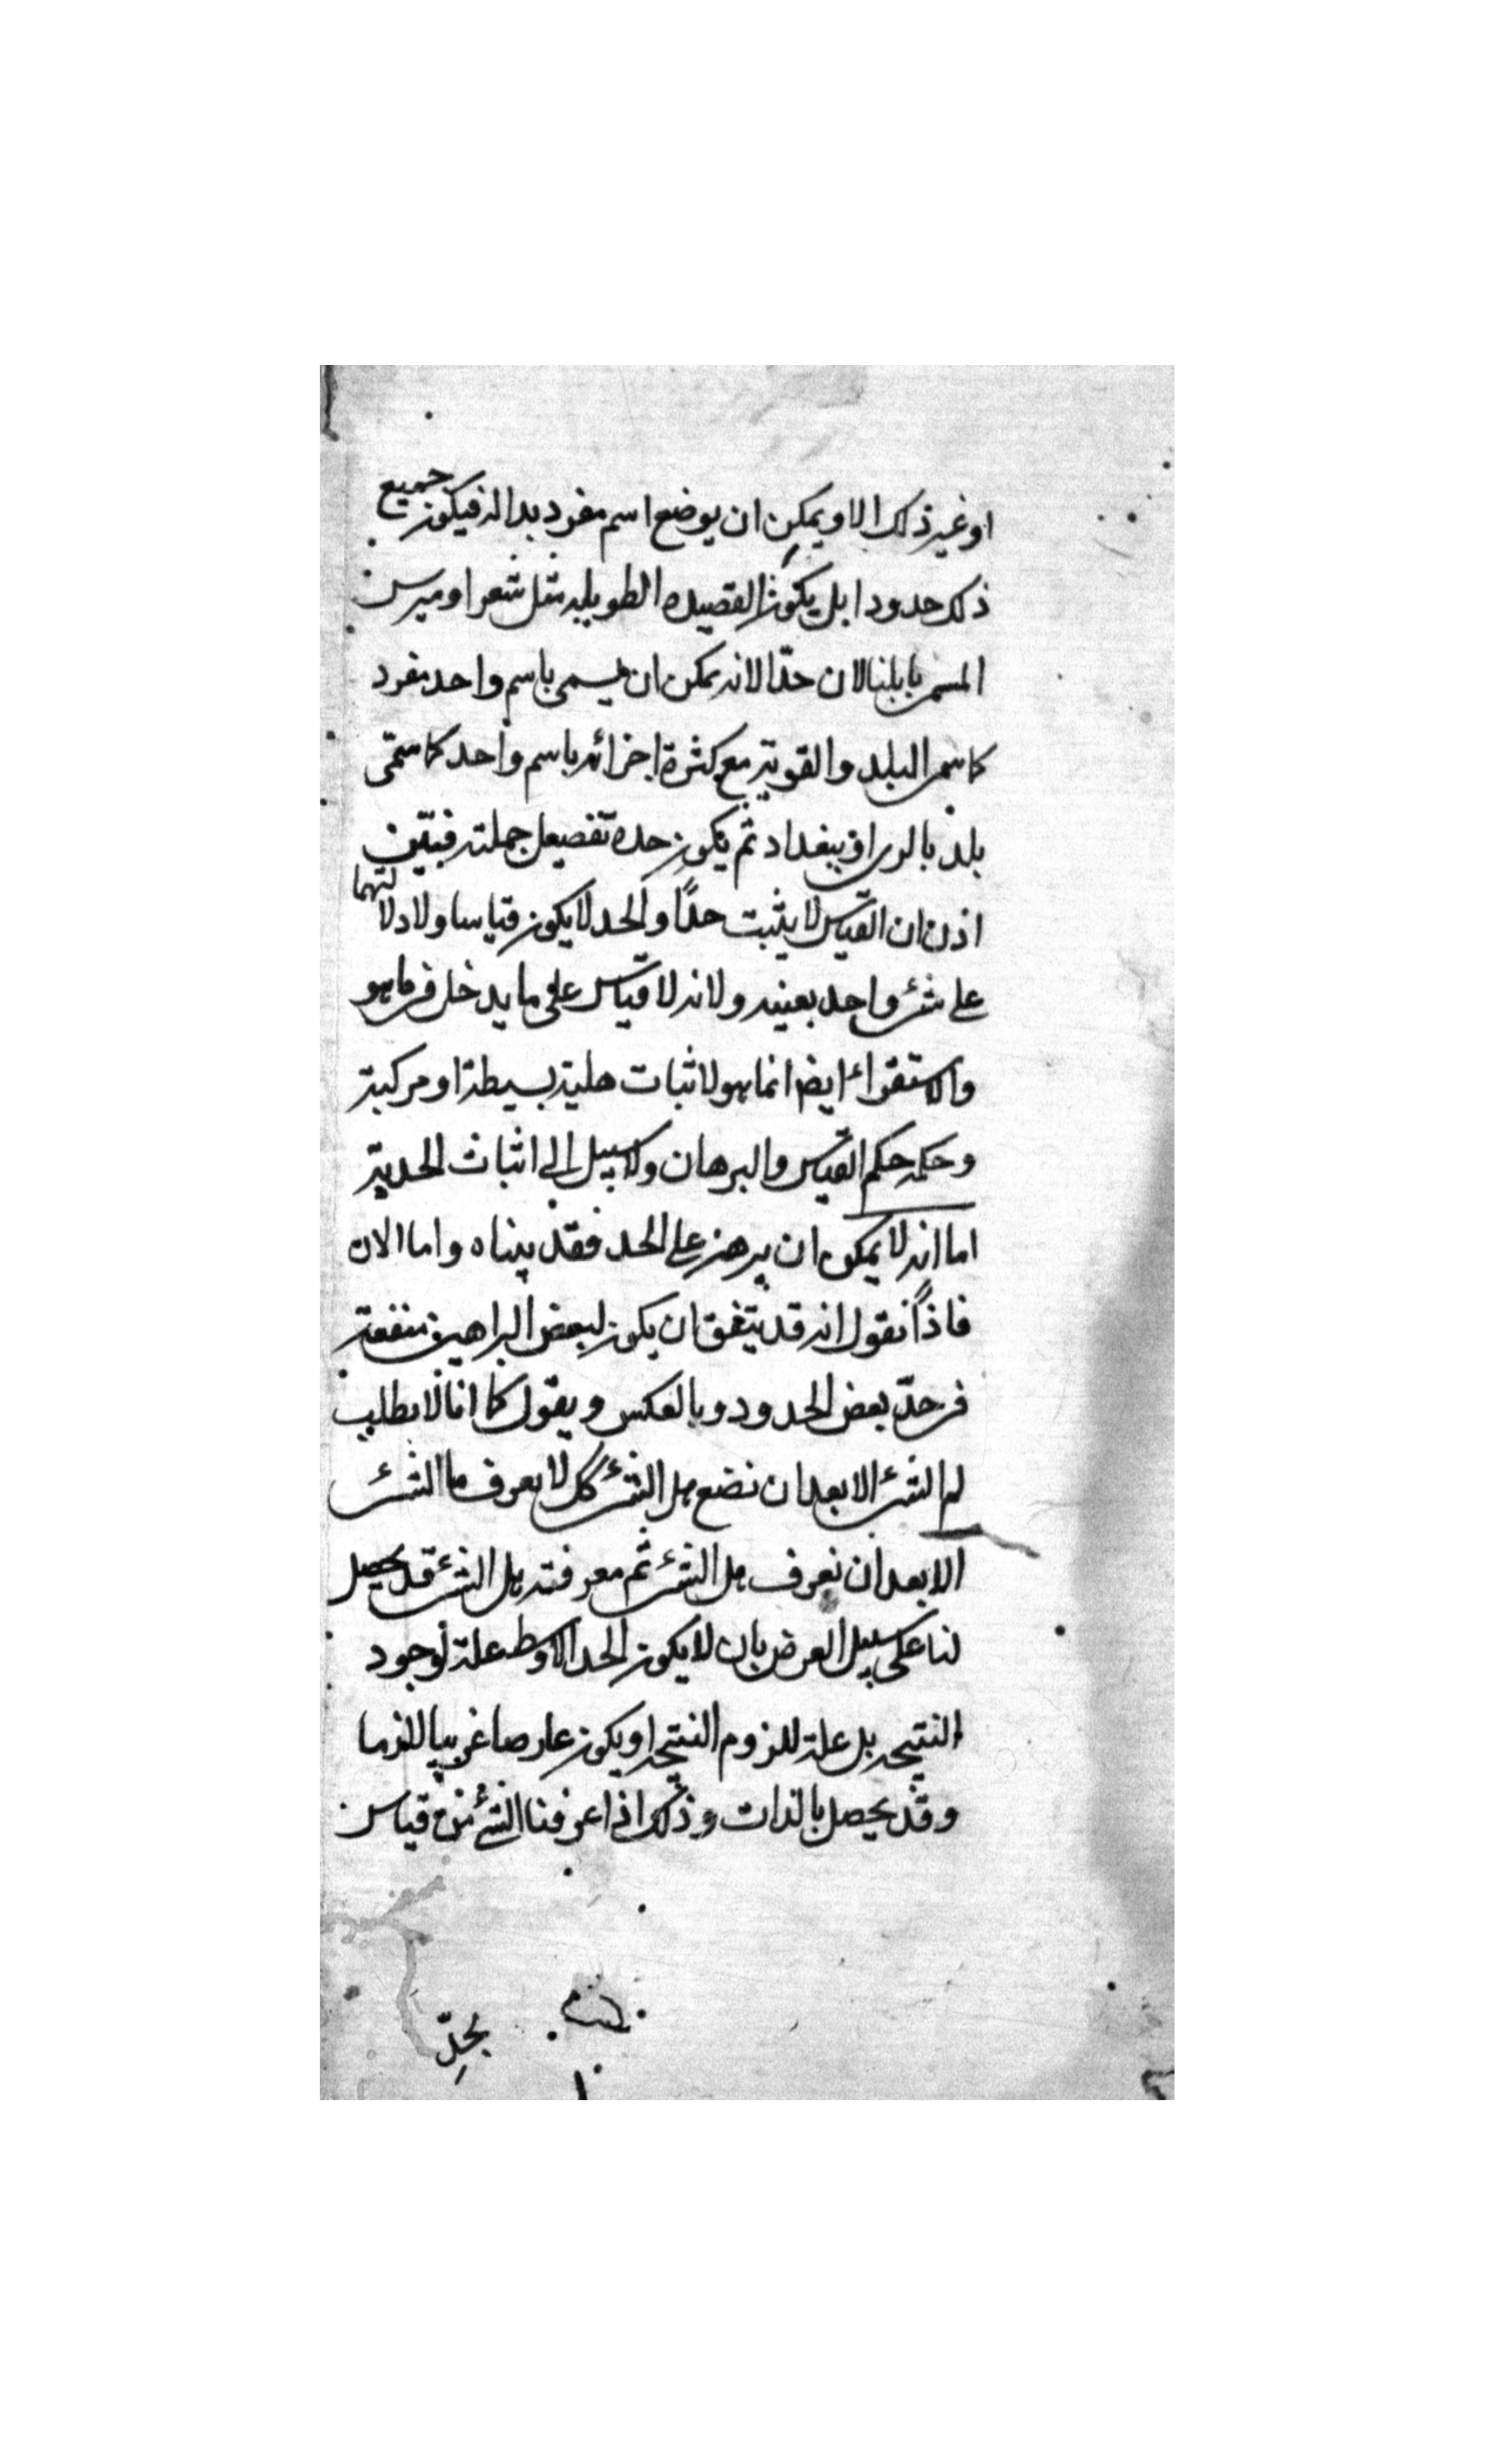 او غير ذلك الا و يمكن ان يوضع اسم مفرد بداله فيكون جميع
ذلك حدودا بل يكون القصيده الطويله مثل شعر اوميرس
المسمى بابلنا لان حدّا لانه يمكن ان يسمى باسم واحد مفرد
كاسم البلد والقوية مع كثرة اجزائه باسم واحد كما سمّى
بلد بالرى او ببغداد ثم يكون حده تفصيل جملته فبيّن
اذن ان القيّاس لا يثبت حدًّا والحد لا يكون قياسا ولا دلالتهما
على شئ واحد بعينه ولانه لا قيّاس على ما يدخل فى ما هو
والاستقراء ايضا انما هو لاثبات هلية بسيطة او مركبة
وحكمه حكم القيّاس والبرهان ولا سبيل الى اثبات الحد به
اما انه لا يمكن ان يبرهن على الحد فقد بيناه واما الان
فاذًا نقول انه قد يتفق ان يكون لبعض البراهين منفعة
فى حدّ بعض الحدود و بالعكس و يقول كما انا لا نطلب
لم الشئ الا بعد ان نضع هل الشئ كك لا نعرف ما الشئ
الا بعد ان نعرف هل الشئ ثم معرفته هل الشئ قد يحصل
لنا على سبيل العرض بان لا يكون الحد الاوسط علة لوجود
النتيجه بل علة للزوم النتيجه او يكون عارضا غريبا لازما
و قد يحصل بالذات و ذلك اذا عرفنا الشئ من قياس
بحدّ